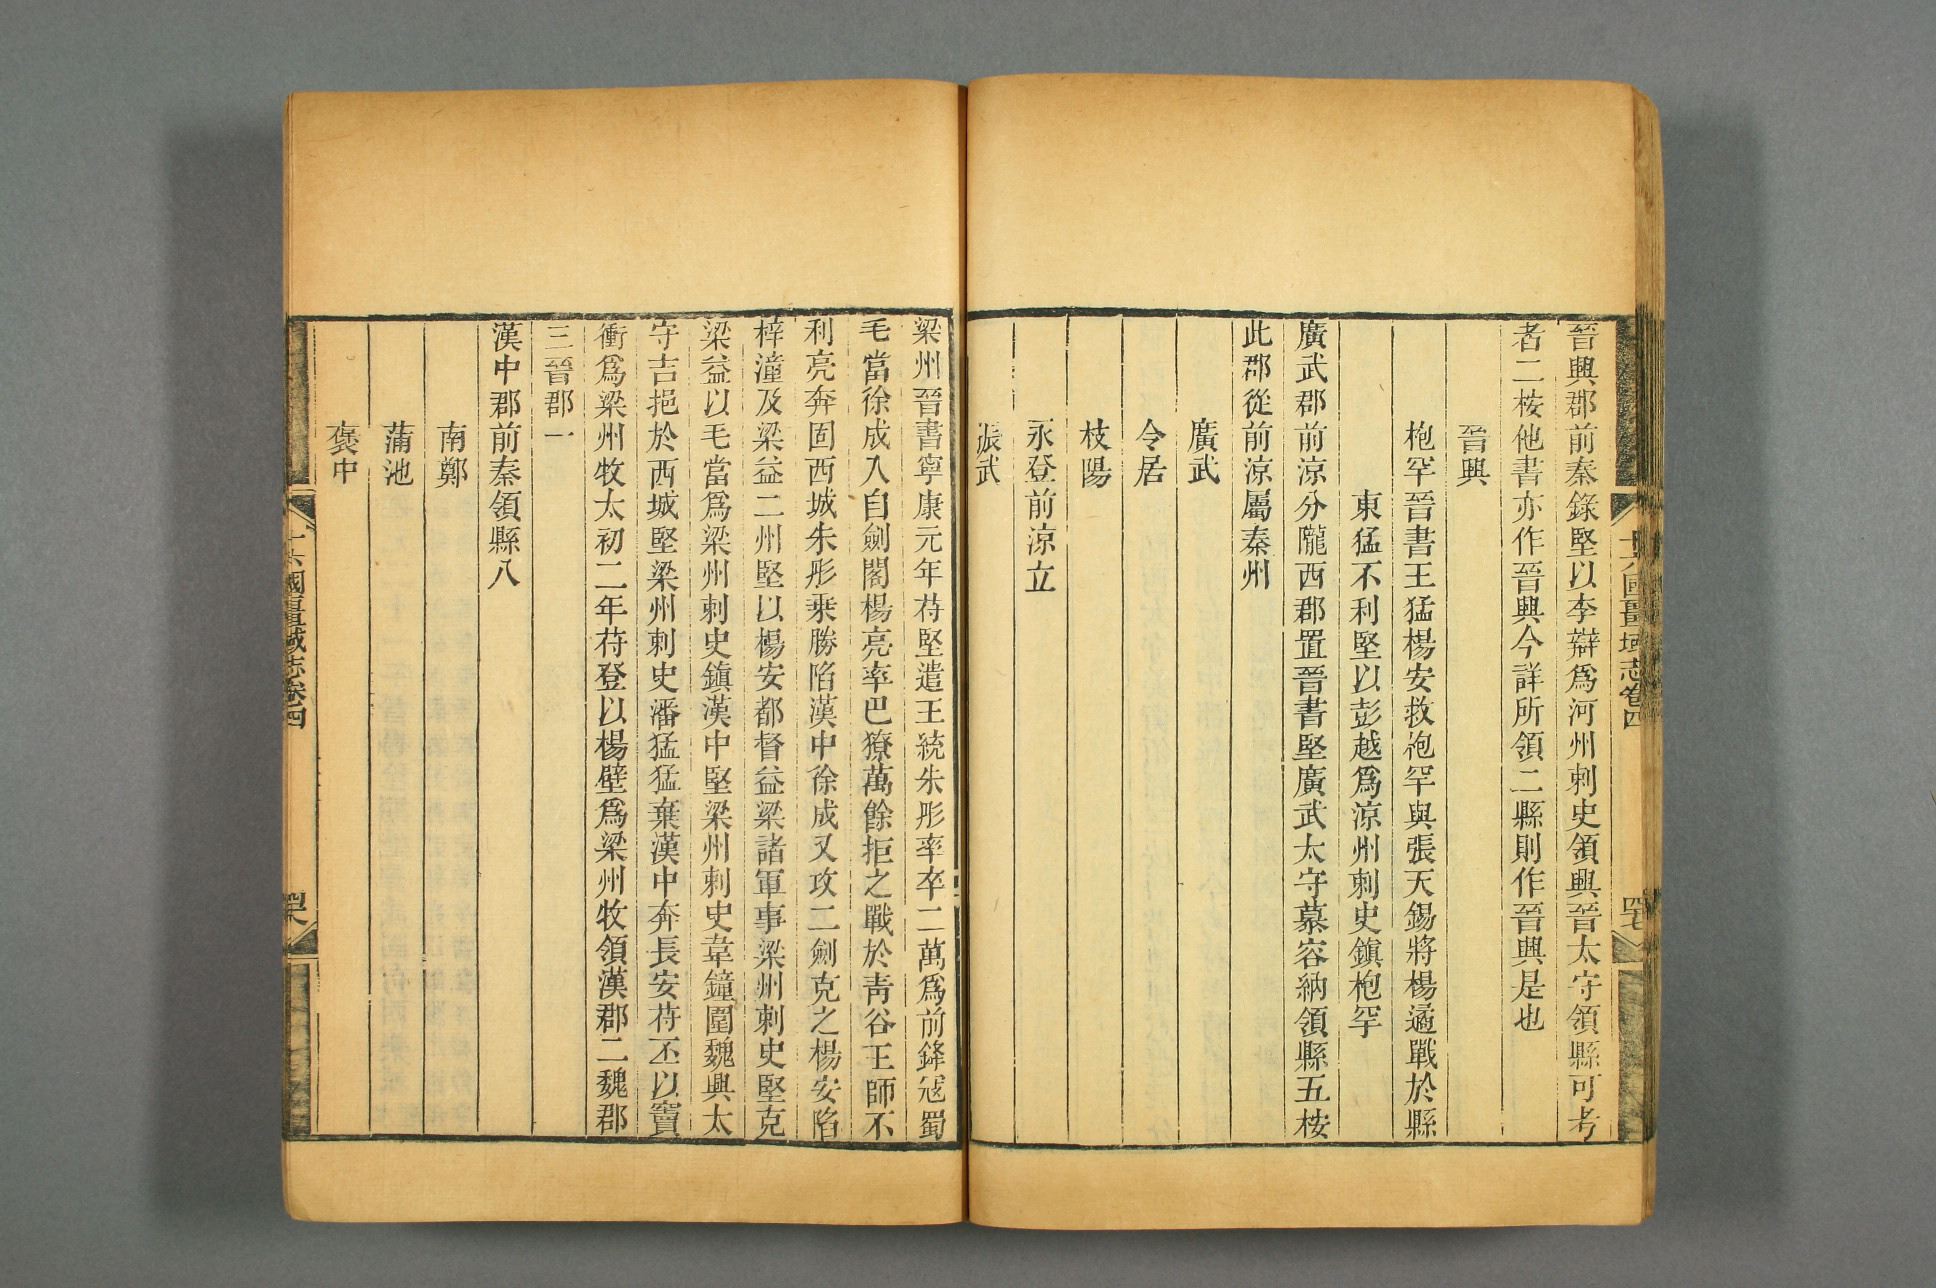 晉興郡前秦錄堅以李辯爲河州刺史領興晉太守領縣可考
者二桉他書亦作晉興今詳所領二縣則作晉興是也
晉興
枹罕晉書王猛楊安救枹罕與張天錫將楊遹戰於縣
東猛不利堅以彭越爲涼州刺史鎮枹罕
廣武郡前涼分隴西郡置晉書堅廣武太守慕容納領縣五桉
此郡從前涼屬秦州
廣武
令居
枝陽
永登前涼立
張武
十六國疆域志卷四
梁州晉書寧康元年苻堅遣王統朱彤率卒二萬爲前鋒寇蜀
毛當徐成入自劍閣楊亮率巴獠萬餘拒之戰於靑谷王師不
利亮奔固西城朱彤乗勝陷漢中徐成又攻二劍克之楊安陷
梓潼及梁益二州堅以楊安都督益梁諸軍事梁州刺史堅克
梁益以毛當爲梁州刺史鎮漢中堅梁州刺史韋鐘圍魏興太
守吉挹於西城堅梁州刺史潘猛猛棄漢中奔長安苻丕以竇
衝爲梁州牧太初二年苻登以楊壁爲梁州牧領漢郡二魏郡
三晉郡一
漢中郡前秦領縣八
南鄭
蒲池
褒中
十六國疆域志卷四